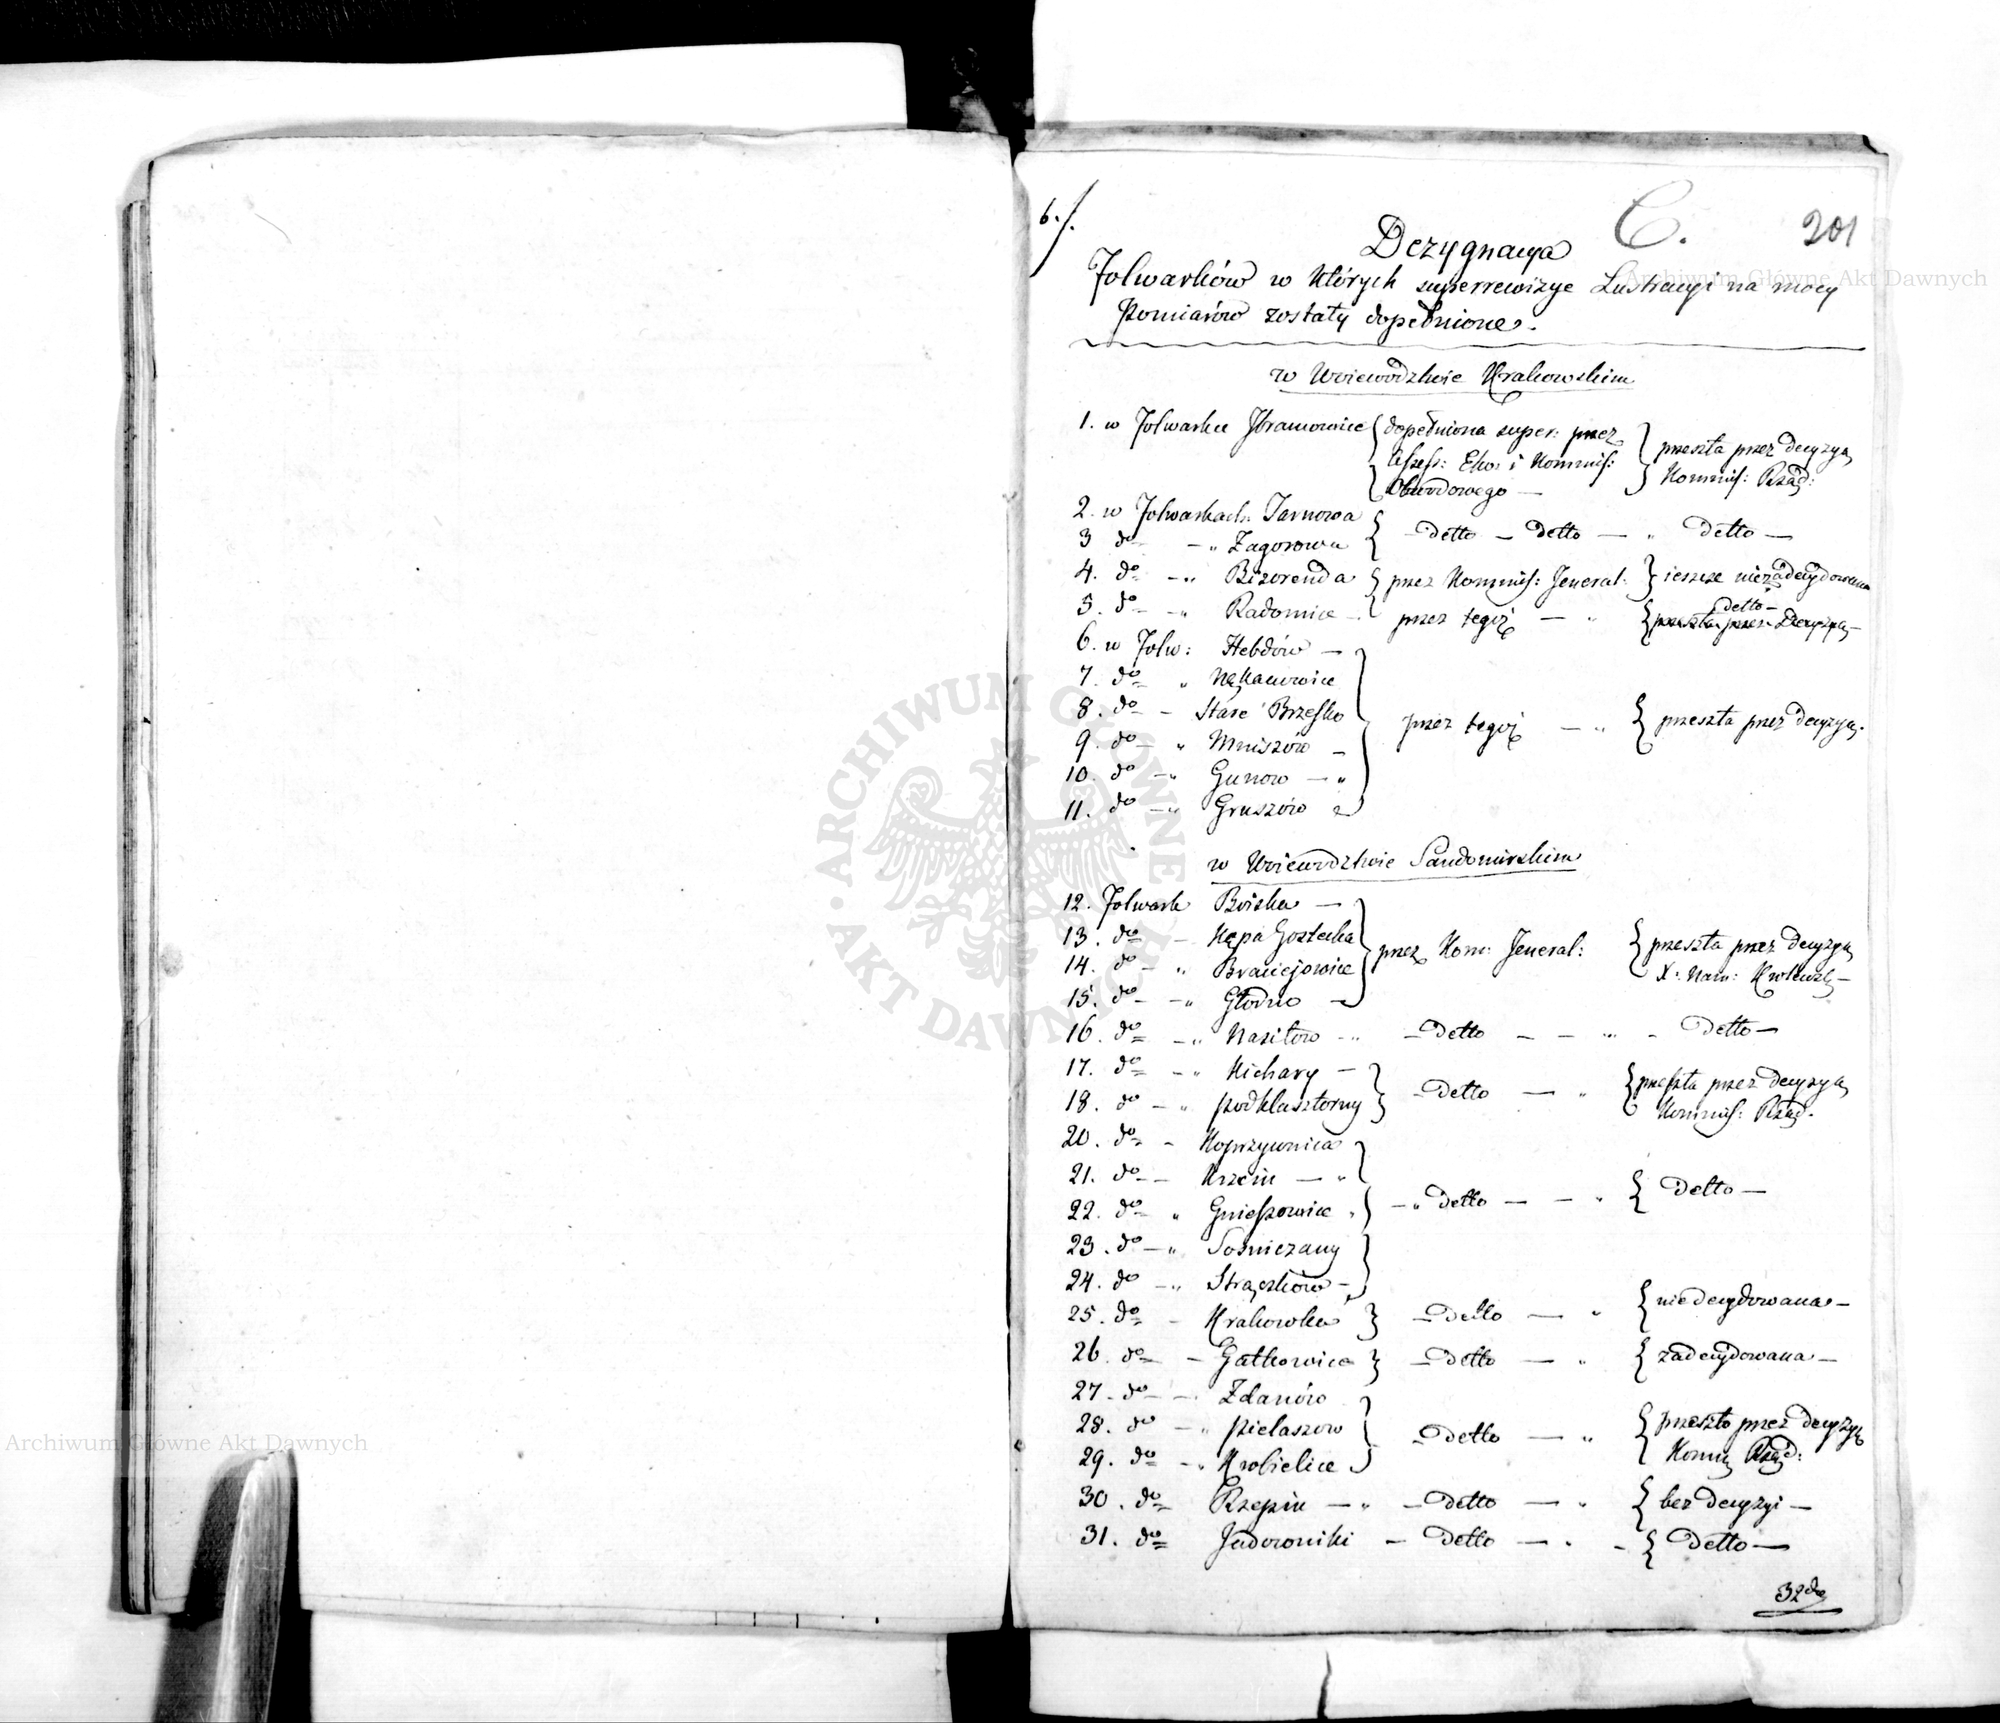 6./.
C.
201
Dezygnacya
Folwarków w których superrewizye Lustracyi na mocy
Pomiarów zostały dopełnione.
w Woiewodztwie Krakowskim
1. w Folwarku Ibramowice { dopełniona super: przez } przeszła przez decyzyą
Assess: Eko: i Kommiss: Kommiss: Rząd:
Obwodowego —
2. w Folwarkach Tarnowa
3 do — " Zagorowa { — detto — detto — " detto —
4. do — " Bizorenda { przez Kommiss: Jeneral: } ieszcze niezadecydowana
5. do — " Radomice — przez tegoż — " { detto —
przeszła przez Decyzyą —
6. w Folw: Hebdów —
7. do " Nękanowice
8. do — Stare Brzesko przez tegoż — " { przeszła przez decyzyą.
9. do — " Mniszów —
10. do — " Gunow — "
11. do — " Gruszów
w Woiewodztwie Sandomirskim
12. Folwark Boiska —
13. do — Kępa Gostecka przez Kom: Jeneral: { przeszła przez decyzyą
14. do — " Braciejowice X: Nam: Krolewsk —
15. do — " Głodno —
16. do — " Nasiłow — " — detto — — " — detto —
17. do — " Kichary —
18. do — " podklasztorny } — detto — " { przeszła przez decyzyą
Kommiss: Rząd.
20. do — Koprzywnica
21. do — Krzcin — "
22. do " Gnieszowice " — " detto — — " { detto —
23. do — " Sośniczany
24. do — " Strączków —
25. do — Krakowka } — detto — " { niedecydowana —
26. do — Gatkowice } — detto — " { zadecydowana —
27. do — Zdanów
28. do — " pielaszow — detto — " { przeszło przez decyzyą
29. do — " Krobielice Rząd:
30. do Rzepin — " — detto — " { bez decyzyi —
31. do Jadowniki — detto — " — { detto —
32do
ARCHIWUM GŁÓWNE AKT DAWNYCH
Archiwum Główne Akt Dawnych
Archiwum Główne Akt Dawnych